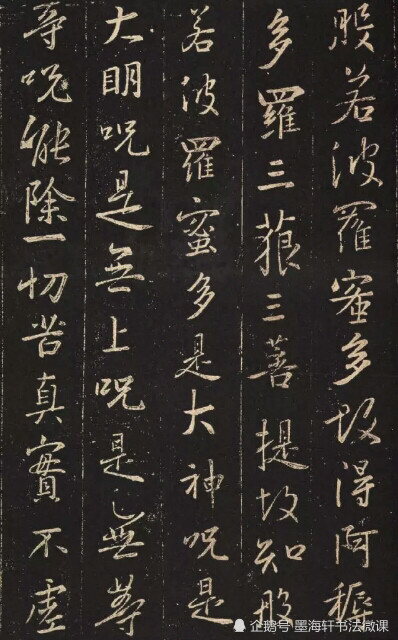 般若波羅蜜多故得阿耨
多羅三藐三菩提故知般
若波羅蜜多是大神呪是
大明呪是無上呪是無等
等呪能除一切苦真實不虛
企鹅号 墨海轩书法微课